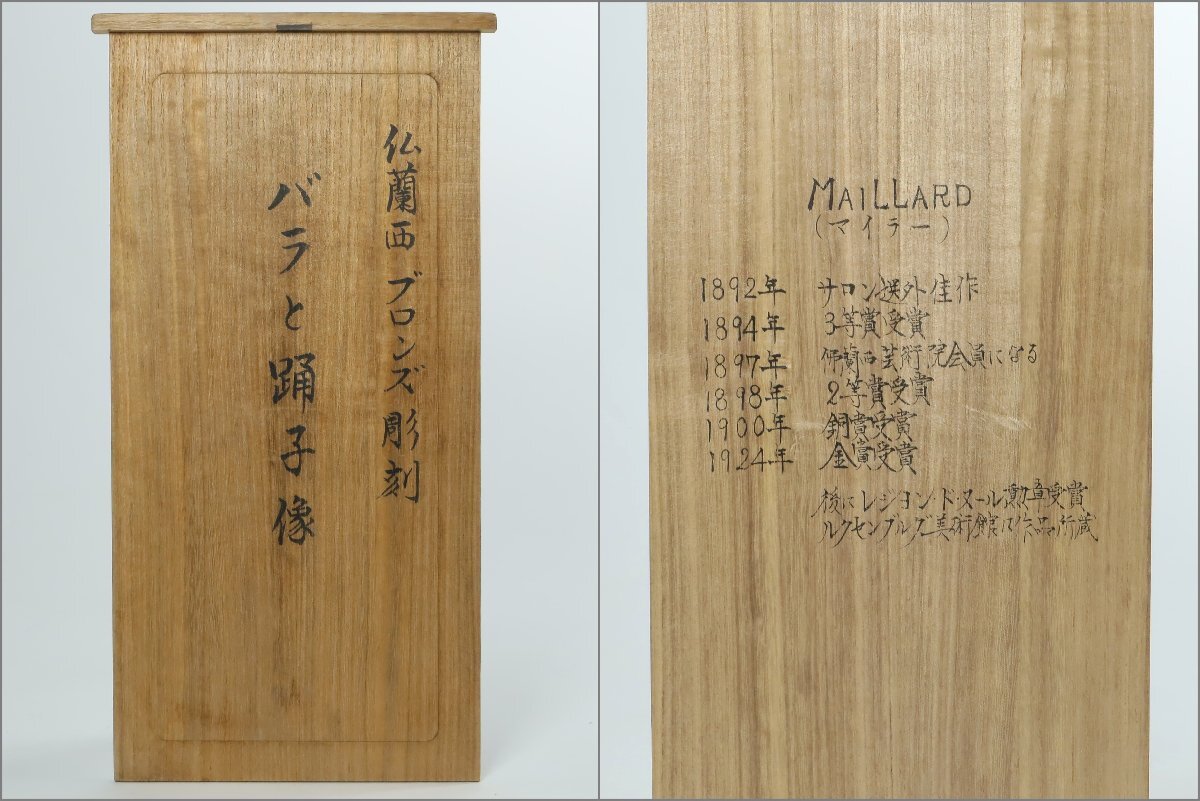 仏蘭西 ブロンズ彫刻
バラと踊子像
MAILLARD
(マイラー)
1892年 サロン選外佳作
1894年 3等賞受賞
1897年 佛蘭西芸術院会員になる
1898年 2等賞受賞
1900年 銅賞受賞
1924年 金賞受賞
後にレジヨン・ド・ヌール勲章受賞
ルクセンブルグ美術館に作品所蔵